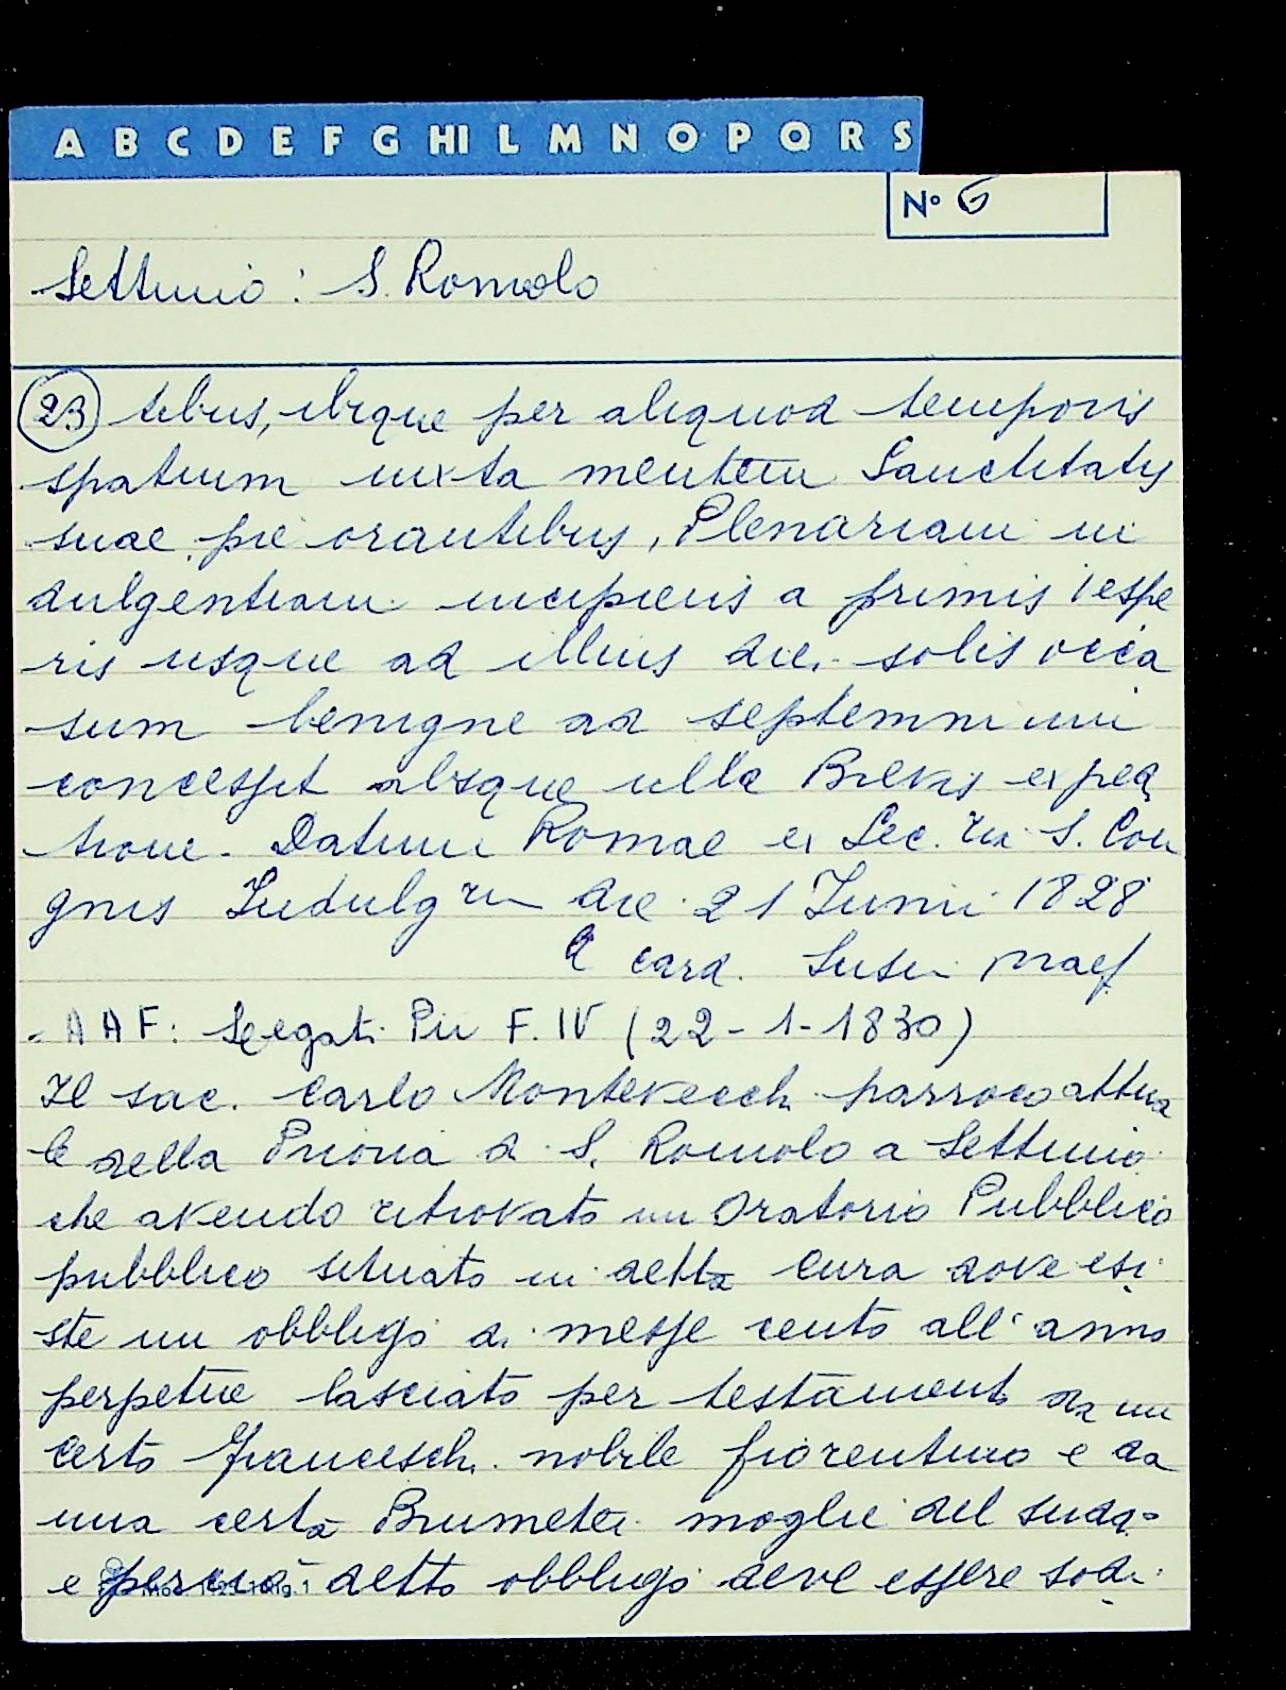 A B C D E F G HI L M N O P Q R S
N° 6
Settimio: S. Romolo
23 tibus, ibique per aliquod temporis
spatium iuxta mentem Sanctitatis
suae pie orantibus, Plenariam in
dulgentiam incipiens a primis vespe
ris usque ad illius diei solis occa
sum benigne ad septemnium
concessit absque ulla Brevis expedi
tione. Datum Romae ex Sec. ria S. Con
gnis Indulg rum die 21 Iunii 1828
card. Praef
- A A F: Legati Pii F. IV (22-1-1830)
Il sac. Carlo Montevecchi parroco attua
le della Prioria di S. Romolo a Settimio
che avendo ritrovato un Oratorio Pubblico
pubblico situato in detta Cura dove esi
ste un obbligo di messe cento all'anno
perpetue lasciato per testamento da un
certo Franceschi nobile fiorentino e da
una certa moglie del sudd.
e perciò detto obbligo deve essere sodi